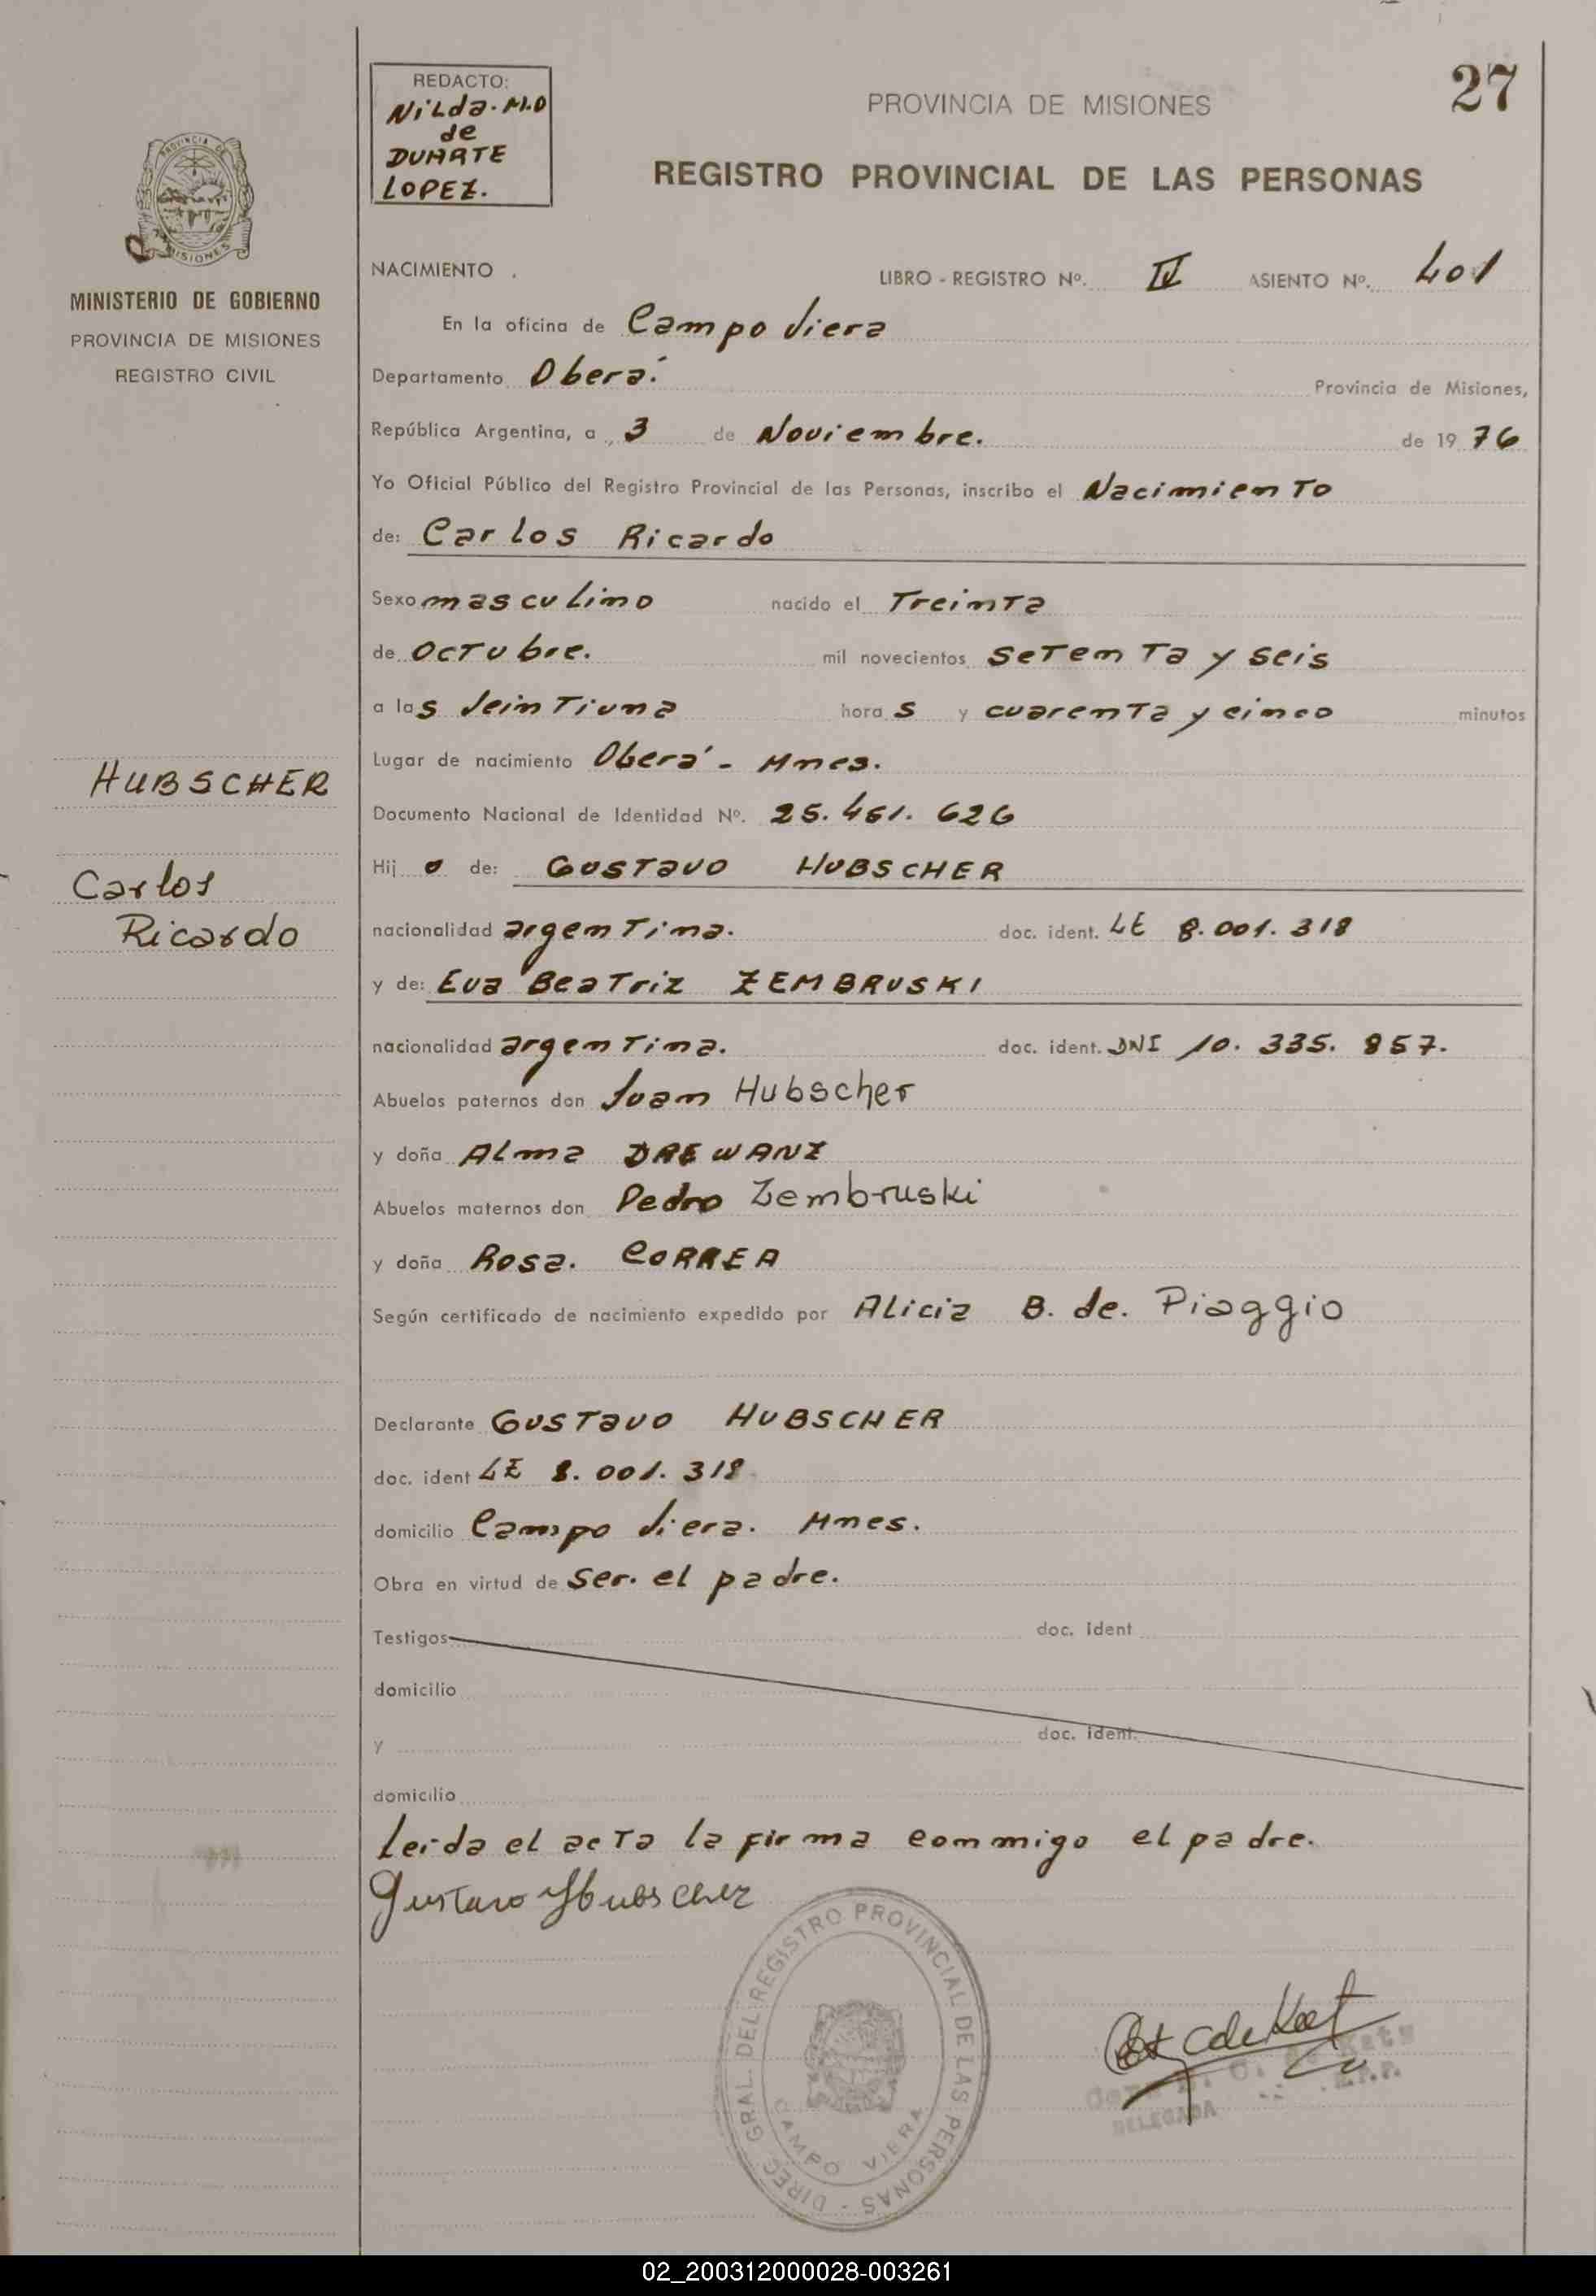 27
REDACTO:
Nilda. M.D
de
DUARTE
LOPEZ.
PROVINCIA DE MISIONES
REGISTRO PROVINCIAL DE LAS PERSONAS
PROVINCIA DE
MISIONES
MINISTERIO DE GOBIERNO
PROVINCIA DE MISIONES
REGISTRO CIVIL
NACIMIENTO .
LIBRO - REGISTRO Nº. IV ASIENTO Nº. 401
En la oficina de Campo Viera
Departamento Oberá. Provincia de Misiones,
República Argentina, a 3 de Noviembre. de 19 76
Yo Oficial Público del Registro Provincial de las Personas, inscribo el Nacimiento
de: Carlos Ricardo
Sexo masculino nacido el Treinta
de Octubre. mil novecientos setenta y seis
a las Veintiuna hora s y cuarenta y cinco minutos
Lugar de nacimiento Oberá - Mnes.
HUBSCHER
Documento Nacional de Identidad Nº. 25.461.626
Carlos
Ricardo
Hij o de: Gustavo HUBSCHER
nacionalidad argentina. doc. ident. LE 8.001.318
y de: Eva Beatriz ZEMBRUSKI
nacionalidad argentina. doc. ident. DNI 10. 335. 857.
Abuelos paternos don Juan Hubscher
y doña Alma DREWANZ
Abuelos maternos don Pedro Zembruski
y doña Rosa. CORREA
Según certificado de nacimiento expedido por Alicia B. de. Piaggio
Declarante Gustavo HUBSCHER
doc. ident LE 8.001.318
domicilio Campo Viera. Mnes.
Obra en virtud de ser. el padre.
Testigos doc. ident
domicilio
y doc. ident.
domicilio
Leida el acta la firma conmigo el padre.
Gustavo Hubscher
DIREC. GRAL. DEL REGISTRO PROVINCIAL DE LAS PERSONAS -
CAMPO VIERA
DELEGADA
02_200312000028-003261